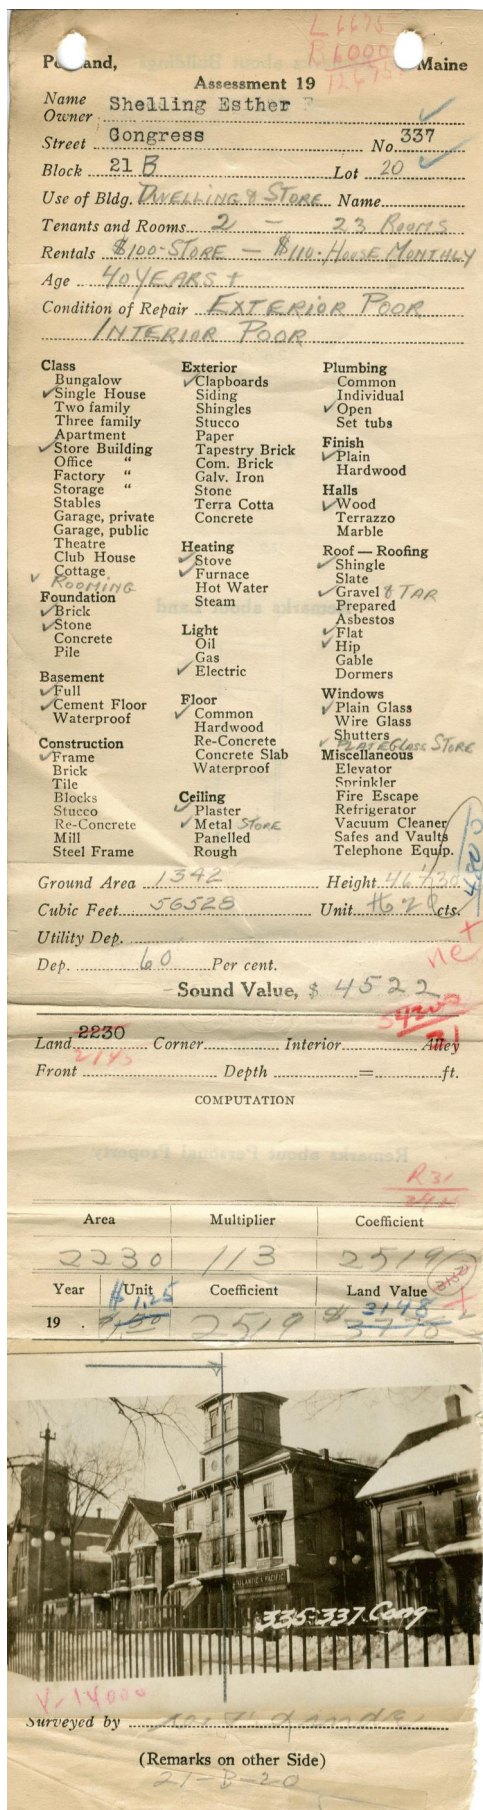 L 6675
R 6000
12675
Portland, Maine
Assessment 19
Name
Owner Shelling Esther F
Street Congress No. 337
Block 21 B Lot 20
Use of Bldg. DWELLING & STORE Name
Tenants and Rooms 2 - 23 ROOMS
Rentals $100-STORE - $110-HOUSE MONTHLY
Age 40 YEARS +
Condition of Repair EXTERIOR POOR
INTERIOR POOR
Class
Bungalow
✓Single House
Two family
Three family
Apartment
✓Store Building
Office "
Factory "
Storage "
Stables
Garage, private
Garage, public
Theatre
Club House
Cottage
✓ ROOMING
Foundation
✓Brick
✓Stone
Concrete
Pile
Basement
✓Full
✓Cement Floor
Waterproof
Construction
✓Frame
Brick
Tile
Blocks
Stucco
Re-Concrete
Mill
Steel Frame
Exterior
✓Clapboards
Siding
Shingles
Stucco
Paper
Tapestry Brick
Com. Brick
Galv. Iron
Stone
Terra Cotta
Concrete
Heating
✓Stove
✓Furnace
Hot Water
Steam
Light
Oil
Gas
✓Electric
Floor
✓Common
Hardwood
Re-Concrete
Concrete Slab
Waterproof
Ceiling
✓Plaster
✓Metal STORE
Panelled
Rough
Plumbing
Common
Individual
✓Open
Set tubs
Finish
✓Plain
Hardwood
Halls
✓Wood
Terrazzo
Marble
Roof — Roofing
✓Shingle
Slate
✓Gravel & TAR
Prepared
Asbestos
✓Flat
✓Hip
Gable
Dormers
Windows
✓Plain Glass
Wire Glass
Shutters
✓ PLATE GLASS STORE
Miscellaneous
Elevator
Sprinkler
Fire Escape
Refrigerator
Vacuum Cleaner
Safes and Vaults
Telephone Equip.
Ground Area 1342 Height 46 & 30
Cubic Feet 56528 Unit cts.
Utility Dep.
Dep. 60 Per cent.
Sound Value, $ 4522
Land 2230 Corner Interior Alley
2145
Front Depth = ft.
COMPUTATION
R 31
Area Multiplier Coefficient
2230 113 2519
Year Unit Coefficient Land Value
$1.25 3148
19 . 1.50 2519 $ 3778
ATLANTIC & PACIFIC
335-337 Cong
V-14000
Surveyed by
(Remarks on other Side)
21-B-20